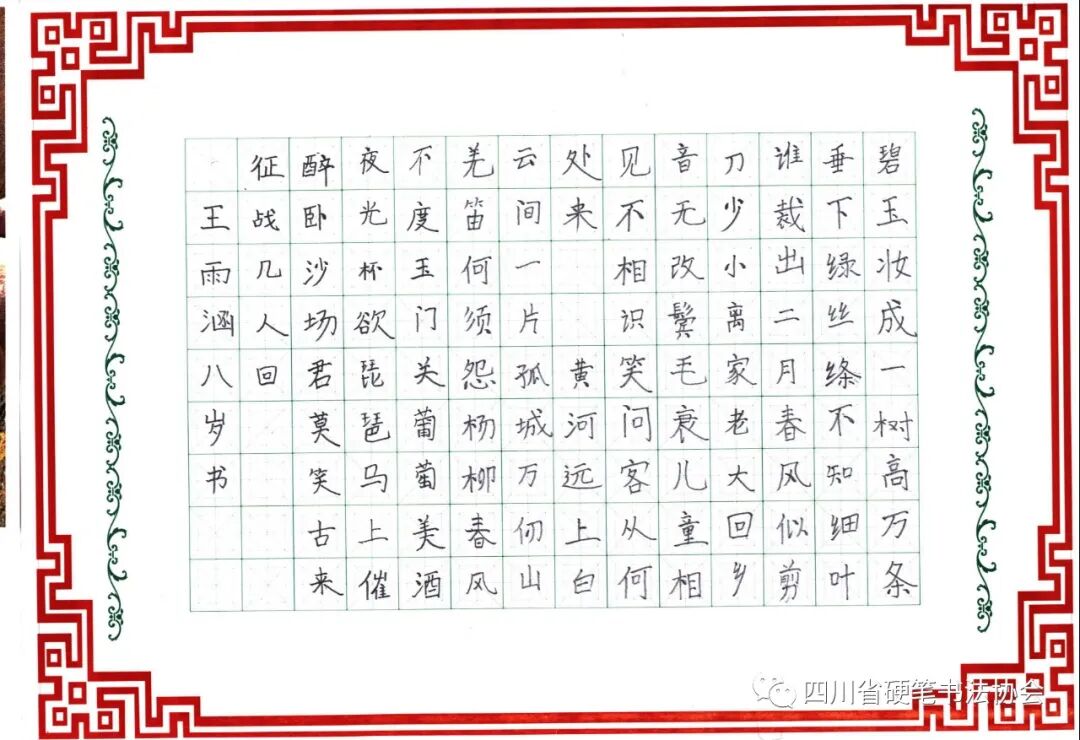 碧玉妆成一树高万条
垂下绿丝绦不知细叶
谁裁出二月春风似剪
刀少小离家老大回乡
音无改鬓毛衰儿童相
见不相识笑问客从何
处来 黄河远上白
云间一片孤城万仞山
羌笛何须怨杨柳春风
不度玉门关葡萄美酒
夜光杯欲琵琶马上催
醉卧沙场君莫笑古来
征战几人回
王雨涵八岁书
四川省硬笔书法协会